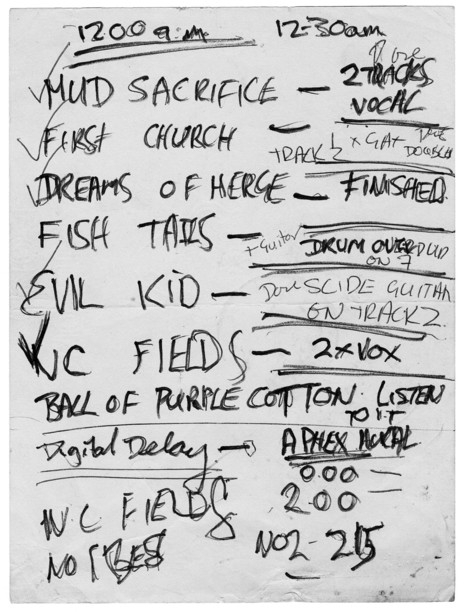 12.00 a.m. 12-30am
MUD SACRIFICE — 2 TRACKS
VOCAL
FIRST CHURCH —
TRACK 2 x GAT
DREAMS OF HERGE — FINISHED
FISH TAILS — + Guitar DRUM OVERDUB
ON 7
EVIL KID — SLIDE GUITAR
ON TRACK 2
WC FIELDS — 2 x VOX
BALL OF PURPLE COTTON. LISTEN
TO IT
Digital Delay — APHEX
0.00
2.00
WC FIELDS
NO 1 NO2 - 215